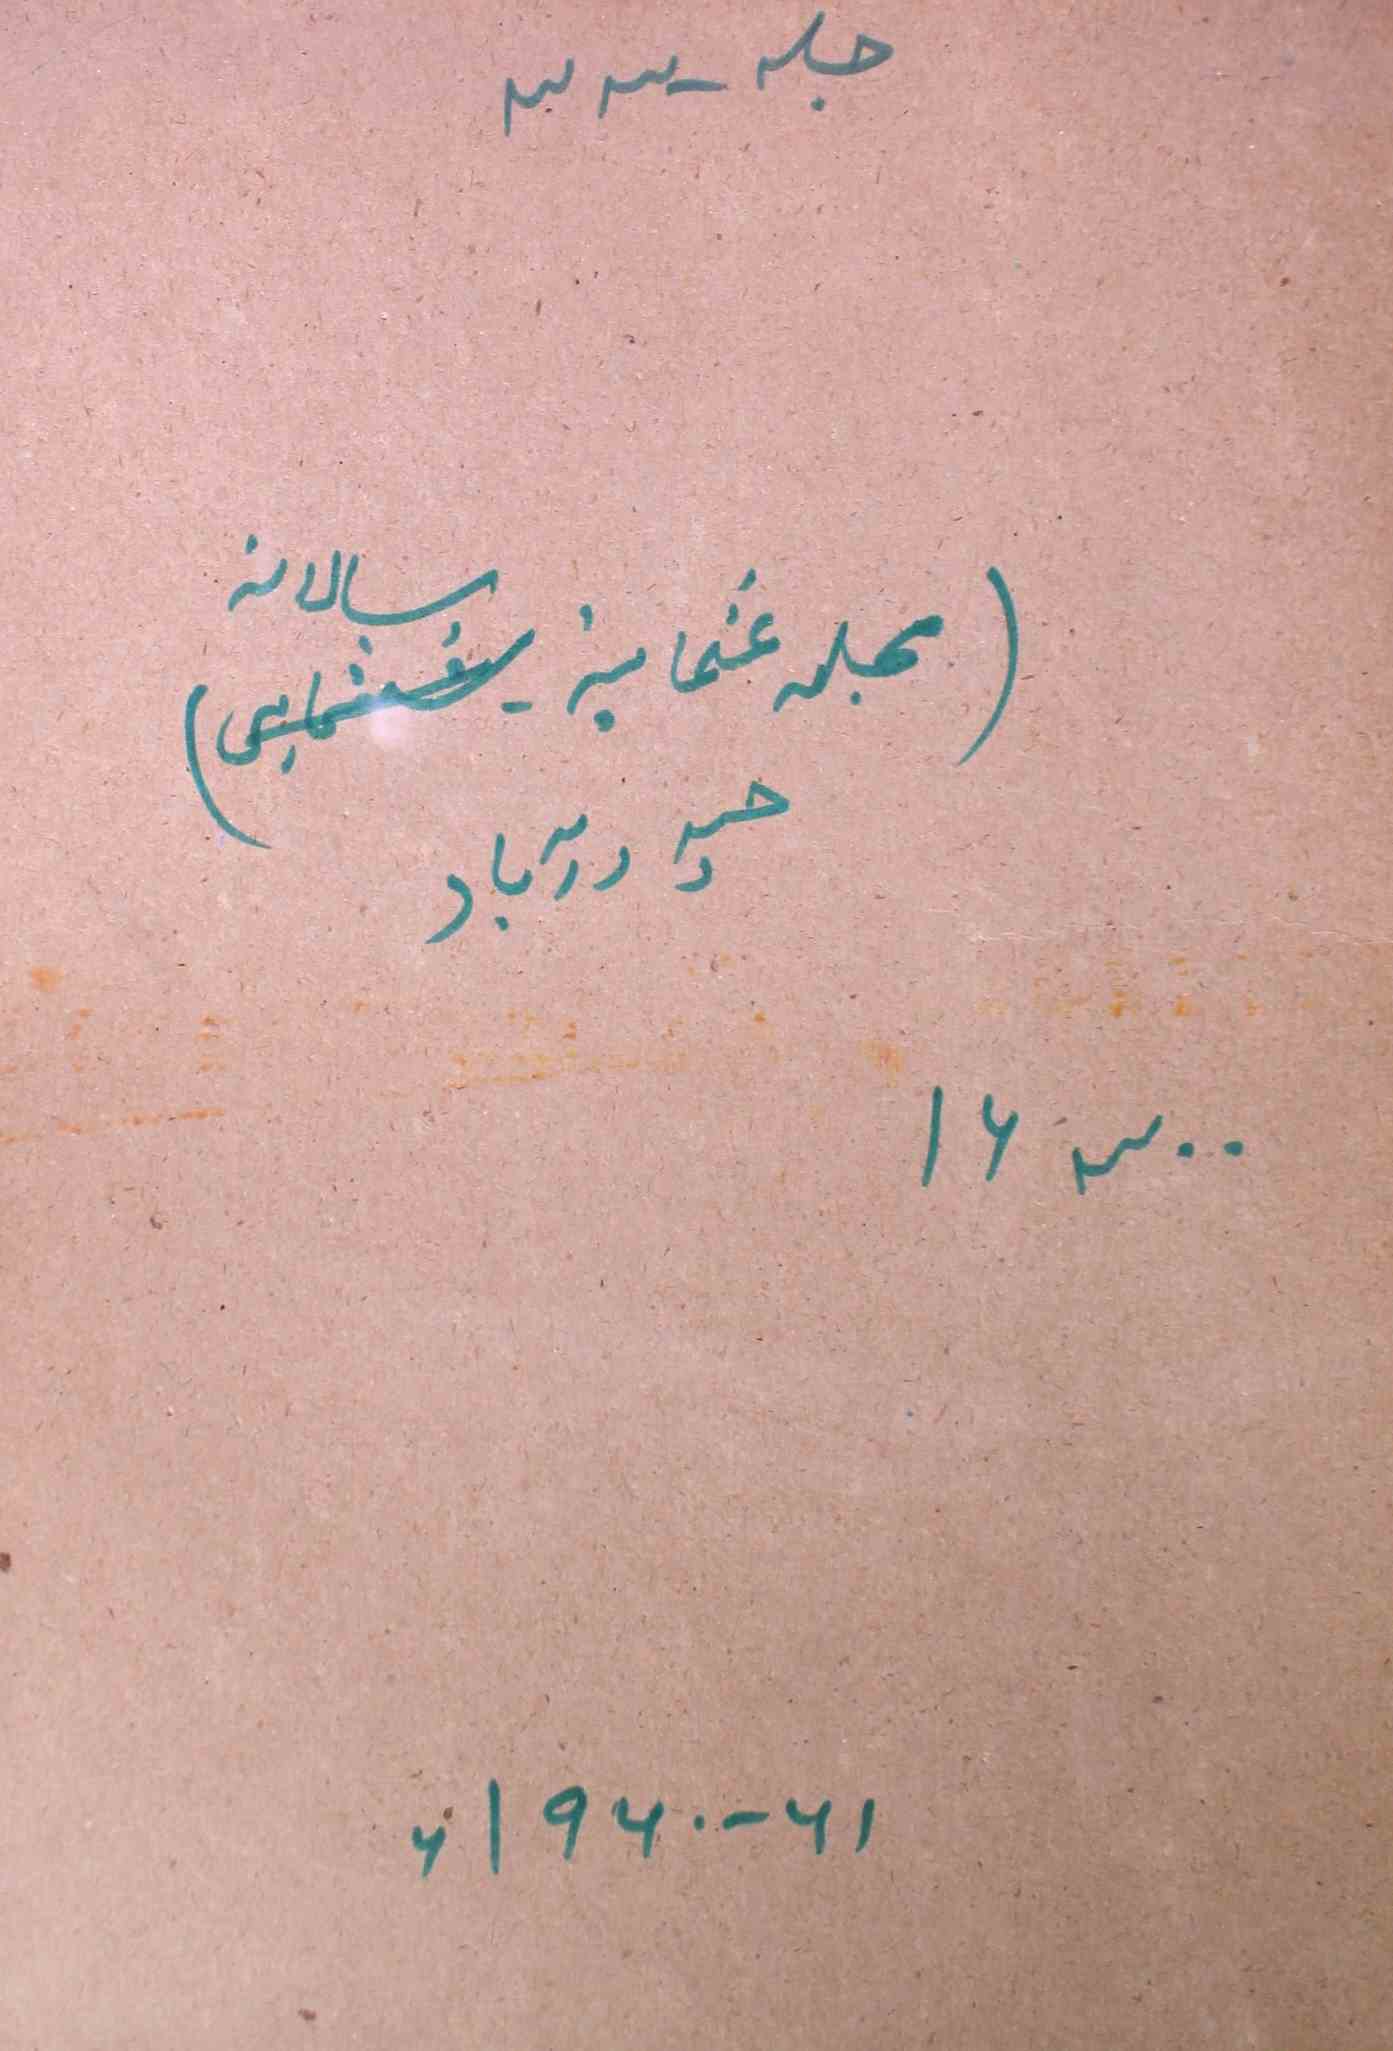 جلد ۔ ۳۳
سالانہ
(مجلہ عثمانیہ ۔ ششماہی)
حیدرآباد
۱۶ ۳۰۰
۱۹۶۰-۶۱ء